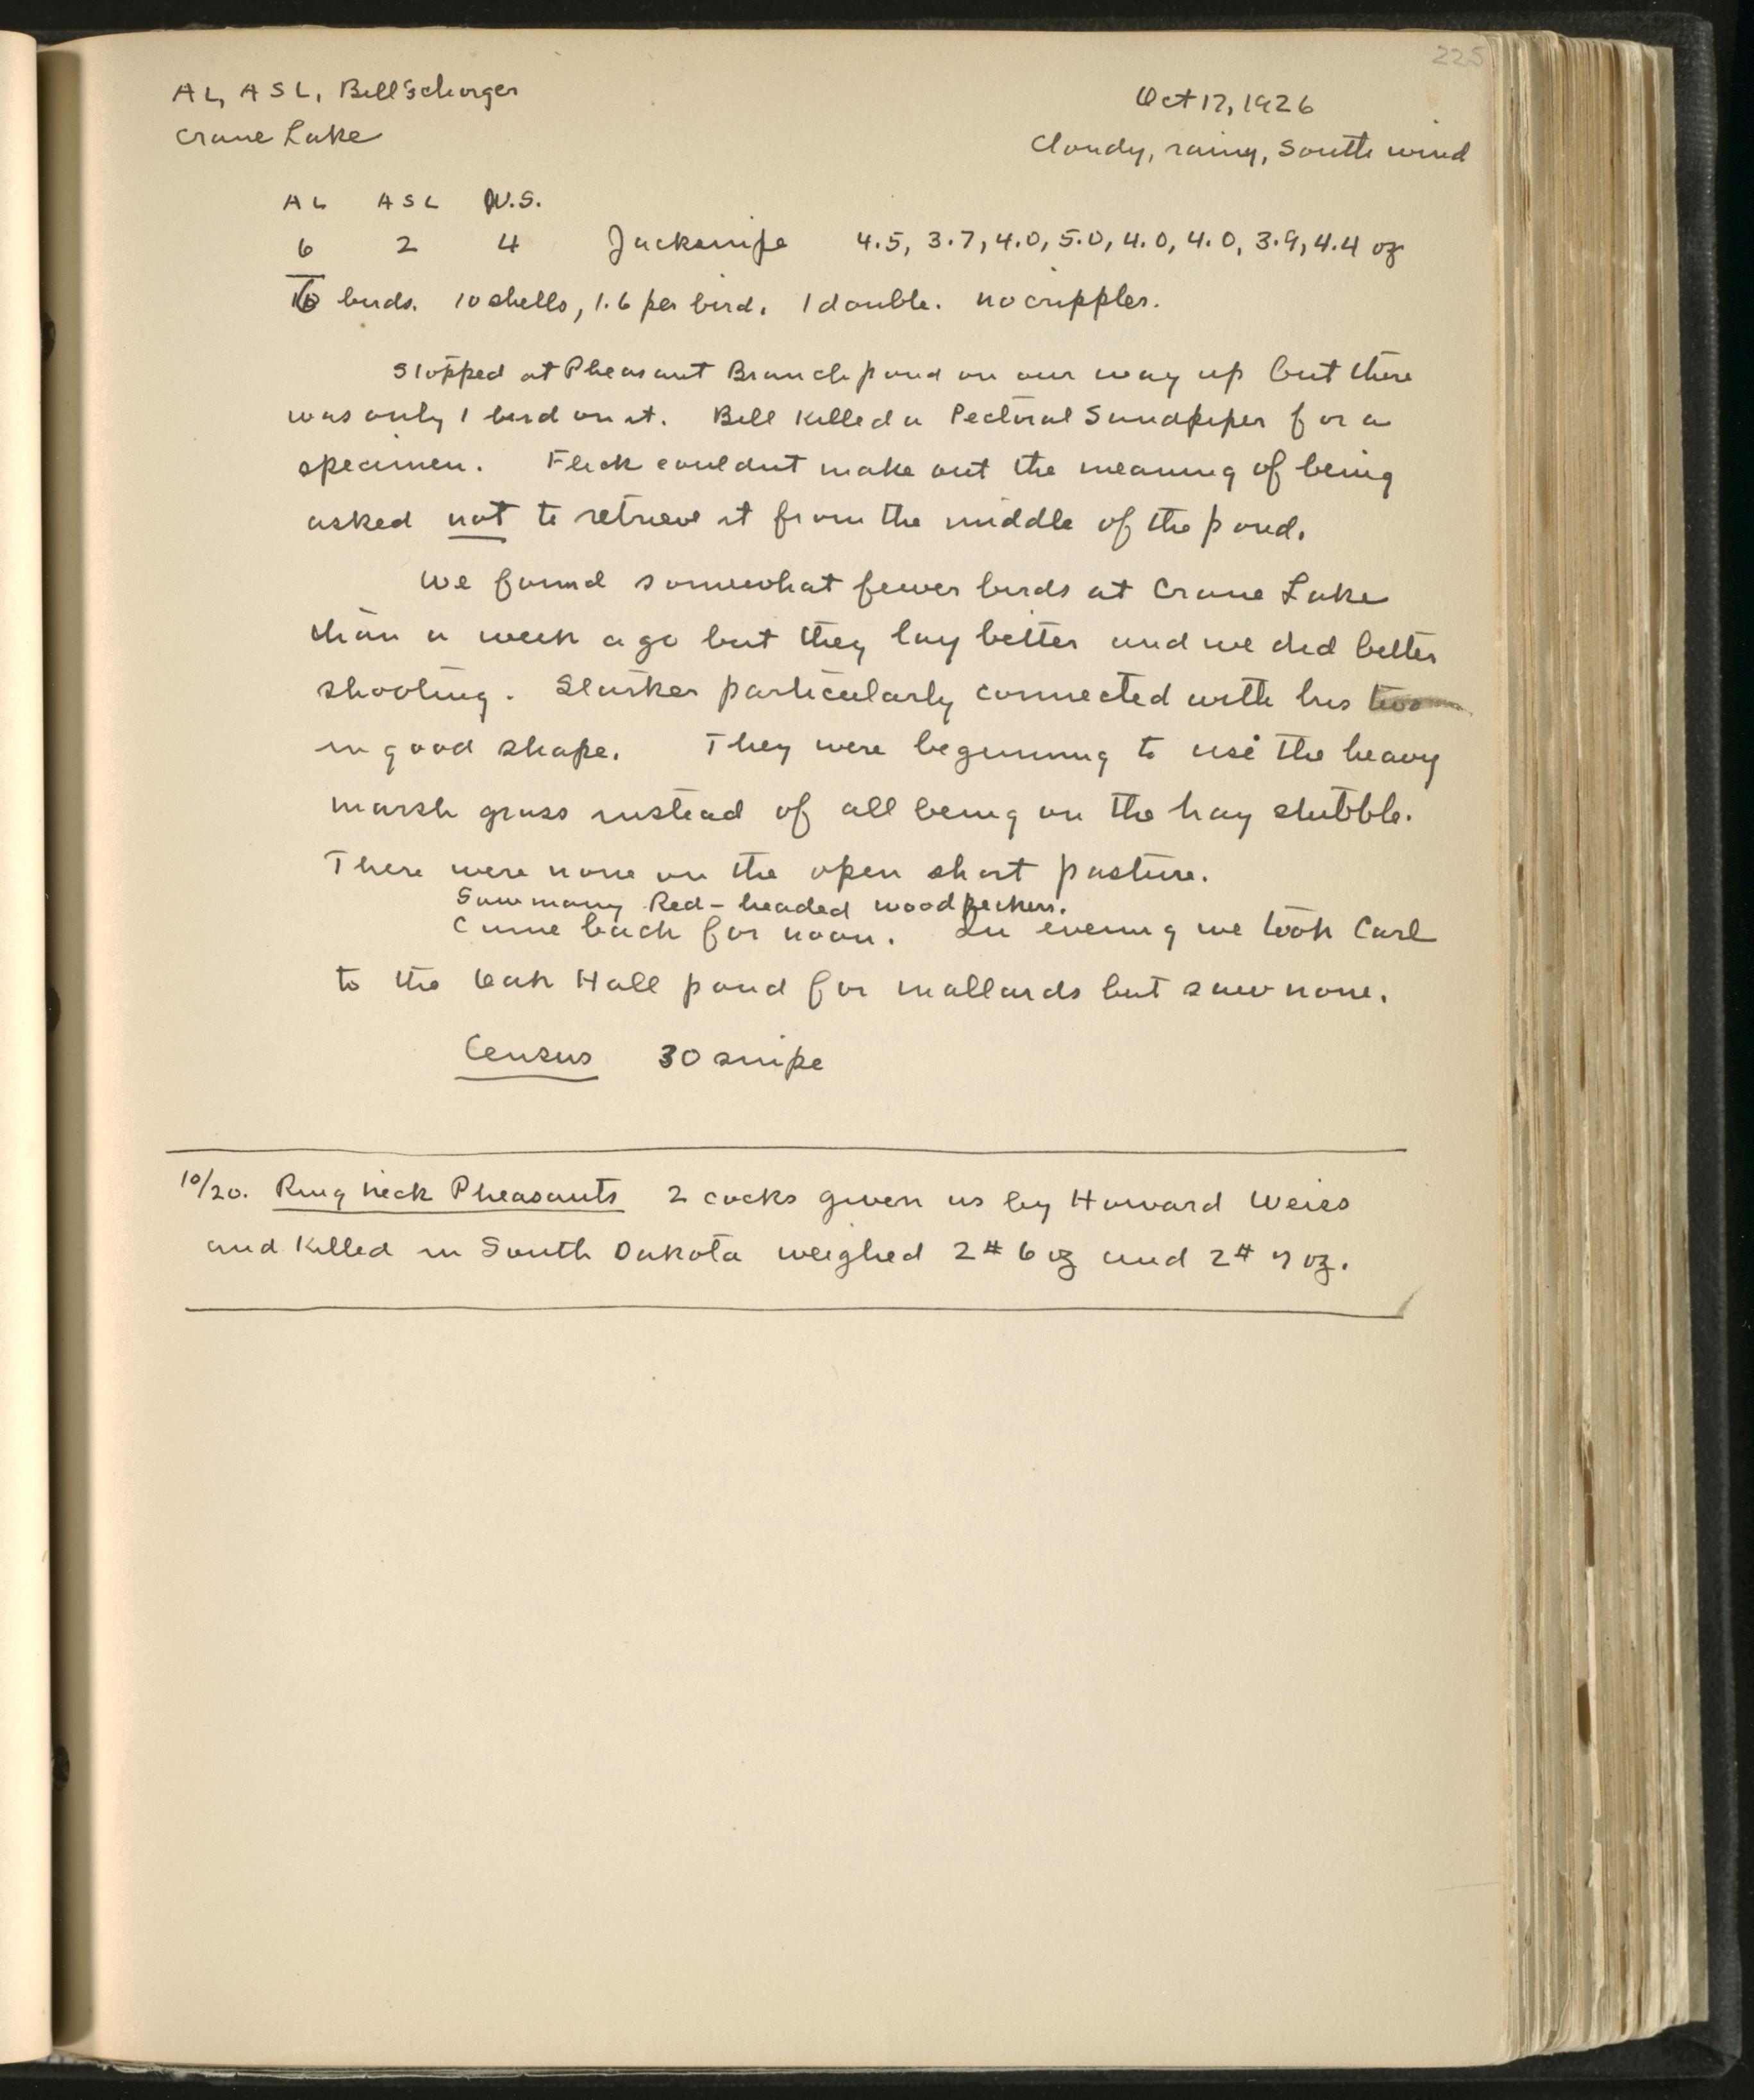 225
AL, ASL, Bill Schorger
Oct 17, 1926
Crane Lake
Cloudy, rainy, South wind
AL ASL W.S.
6 2 4 Jacksnipe 4.5, 3.7, 4.0, 5.0, 4.0, 4.0, 3.9, 4.4 oz
6 birds. 10 shells, 1.6 per bird. 1 double. no cripples.
Stopped at Pheasant Branch pond on our way up but there
was only 1 bird on it. Bill killed a Pectoral Sandpiper for a
specimen. Flick couldnt make out the meaning of being
asked not to retrieve it from the middle of the pond.
We found somewhat fewer birds at Crane Lake
than a week ago but they lay better and we did better
shooting. Starker particularly connected with his two
in good shape. They were beginning to use the heavy
marsh grass instead of all being on the hay stubble.
There were none on the open short pasture.
Saw many Red-headed woodpeckers.
Came back for noon. In evening we took Carl
to the Oak Hall pond for mallards but saw none.
Census 30 snipe
10/20. Ring neck Pheasants 2 cocks given us by Howard Weiss
and killed in South Dakota weighed 2# 6 oz and 2# 7 oz.